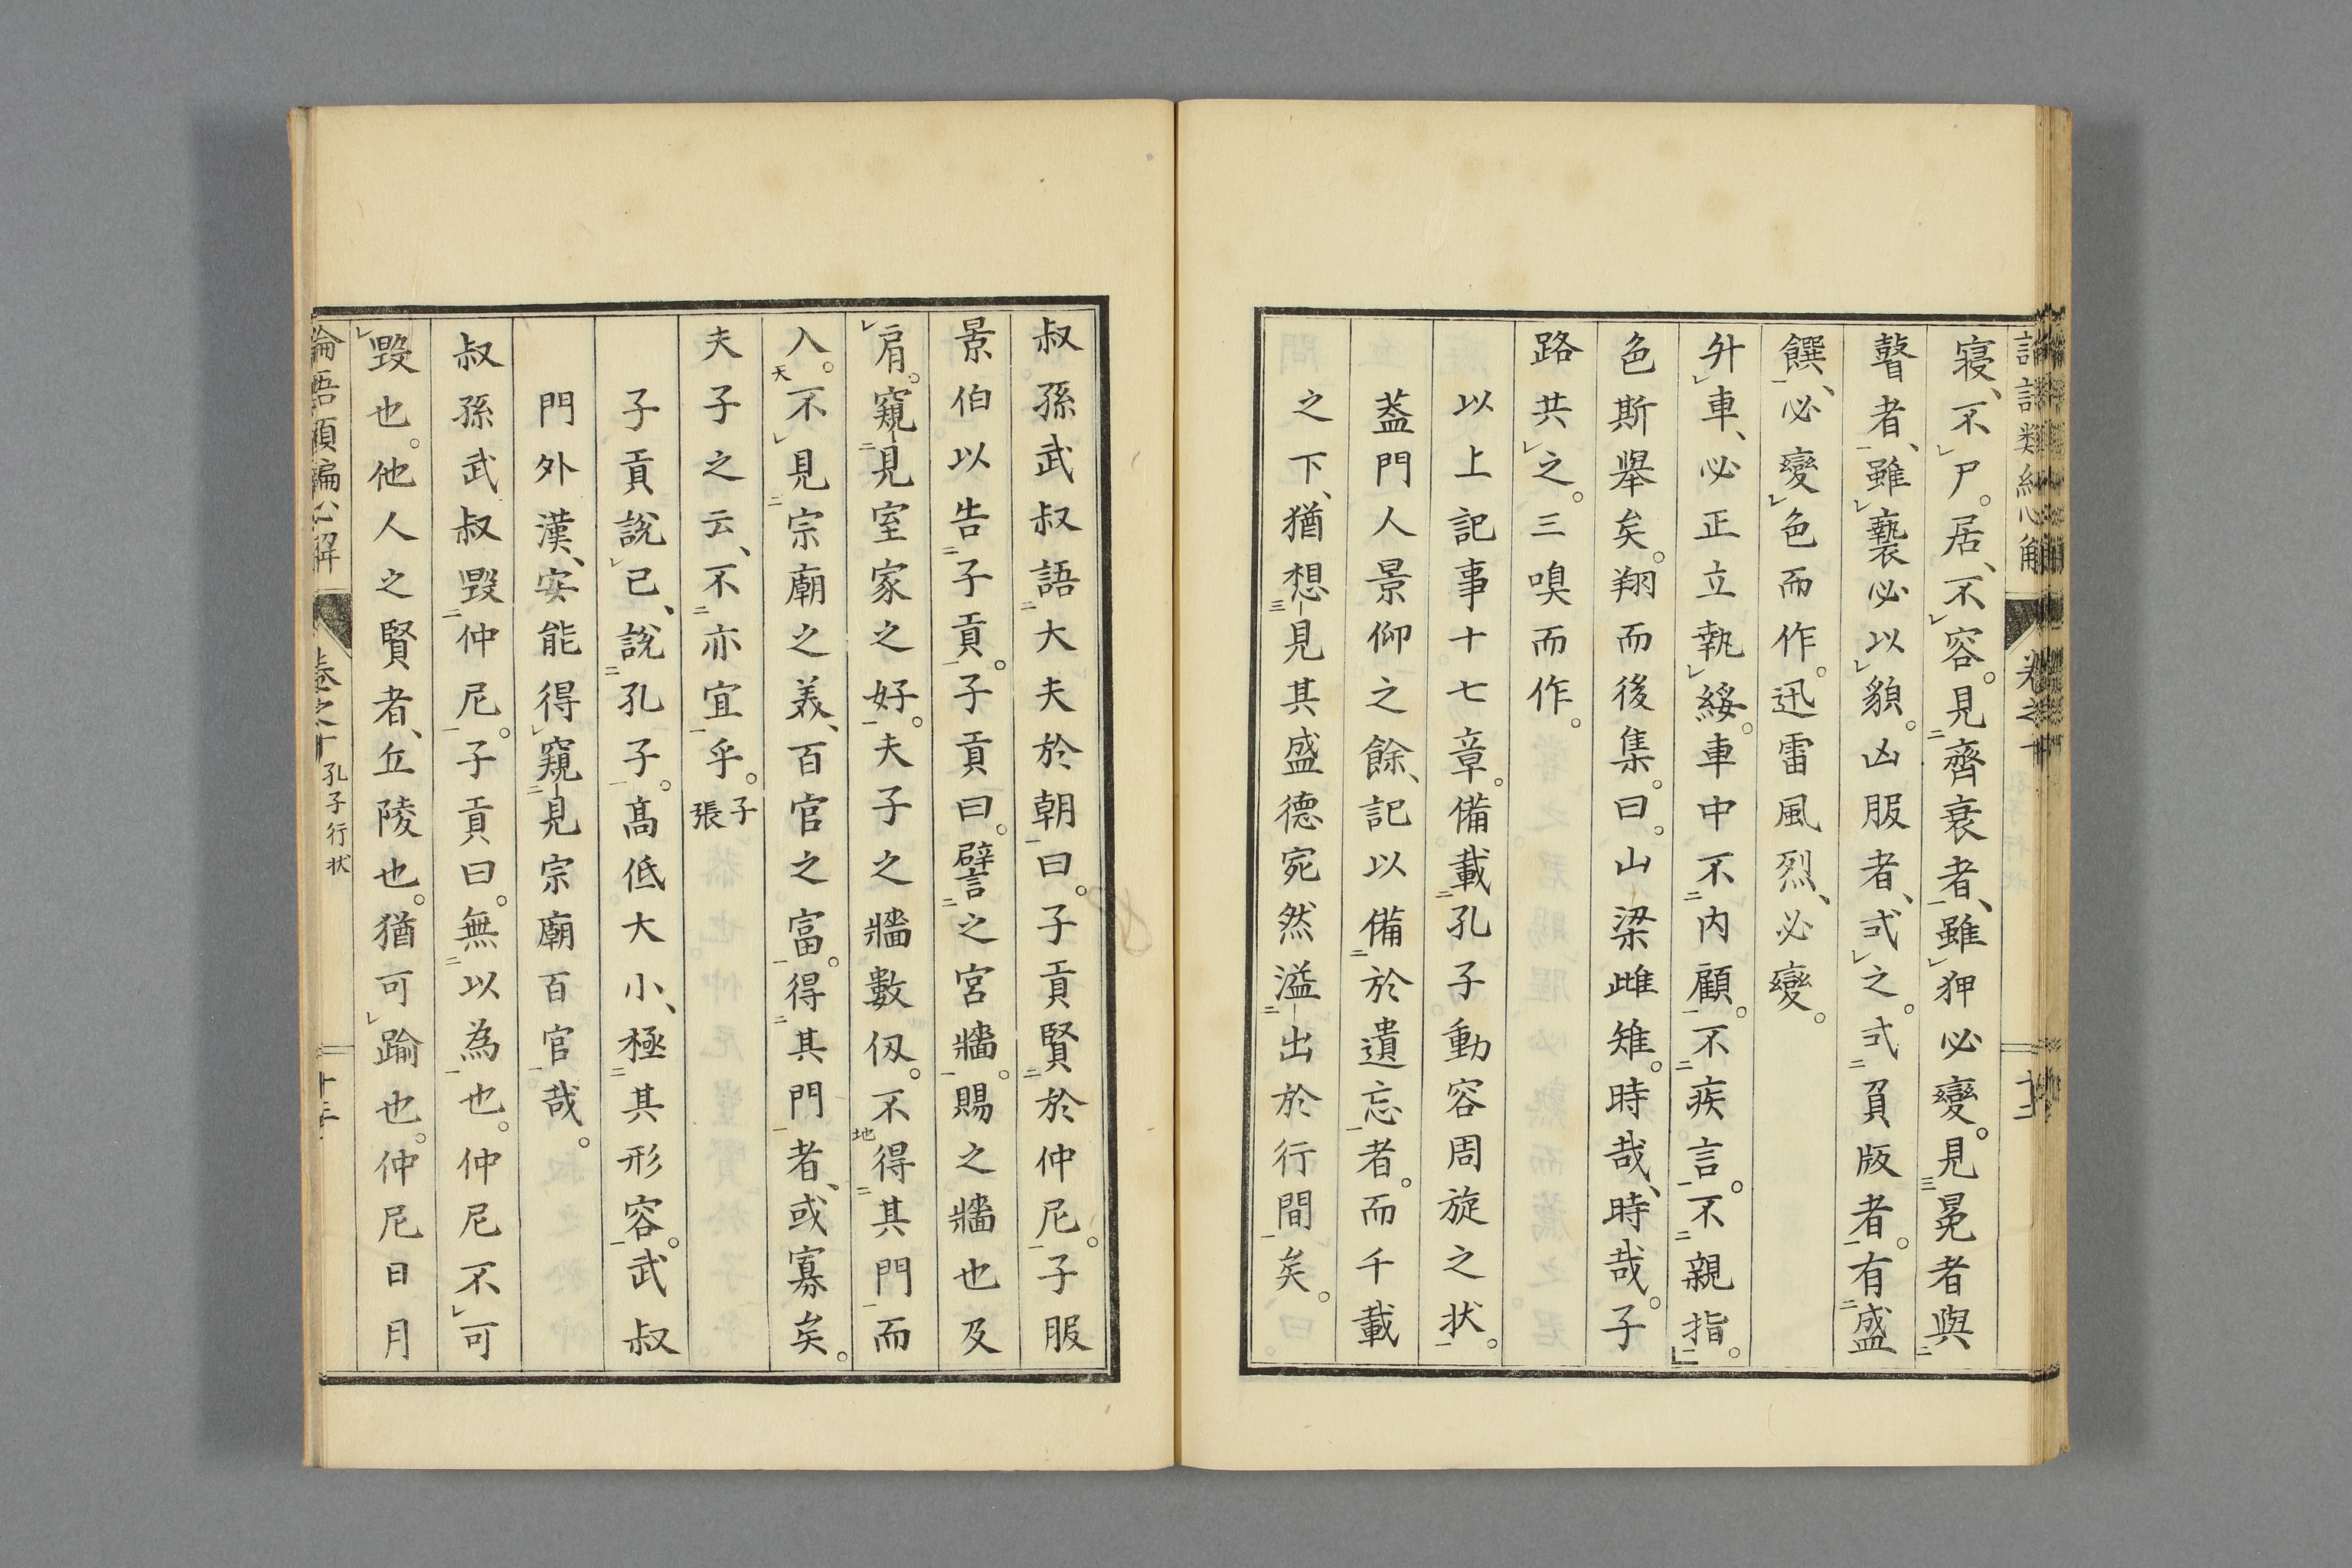 寝、不尸。居、不容。見齊衰者、雖狎必變。見冕者與
瞽者、雖褻必以貌。凶服者、式之。式負版者。有盛
饌、必變色而作。迅雷風烈、必變。
升車、必正立執綏。車中不內顧。不疾言。不親指。
色斯擧矣。翔而後集。曰。山梁雌雉。時哉、時哉。子
路共之。三嗅而作。
以上記事十七章。備載孔子動容周旋之状。
葢門人景仰之餘、記以備於遺忘者。而千載
之下、猶想見其盛德宛然溢出於行間矣。
叔孫武叔語大夫於朝曰。子貢賢於仲尼。子服
景伯以告子貢。子貢曰。譬之宮牆。賜之牆也及
肩。窺見室家之好。夫子之牆數仭。不得其門而
入。不見宗廟之美、百官之富。得其門者、或寡矣。
夫子之云、不亦宜乎。子張
子貢說已、說孔子。高低大小、極其形容。武叔
門外漢、安能得窺見宗廟百官哉。
叔孫武叔毀仲尼。子貢曰。無以為也。仲尼不可
毀也。他人之賢者、丘陵也。猶可踰也。仲尼日月
卷之十 孔子行状 十三